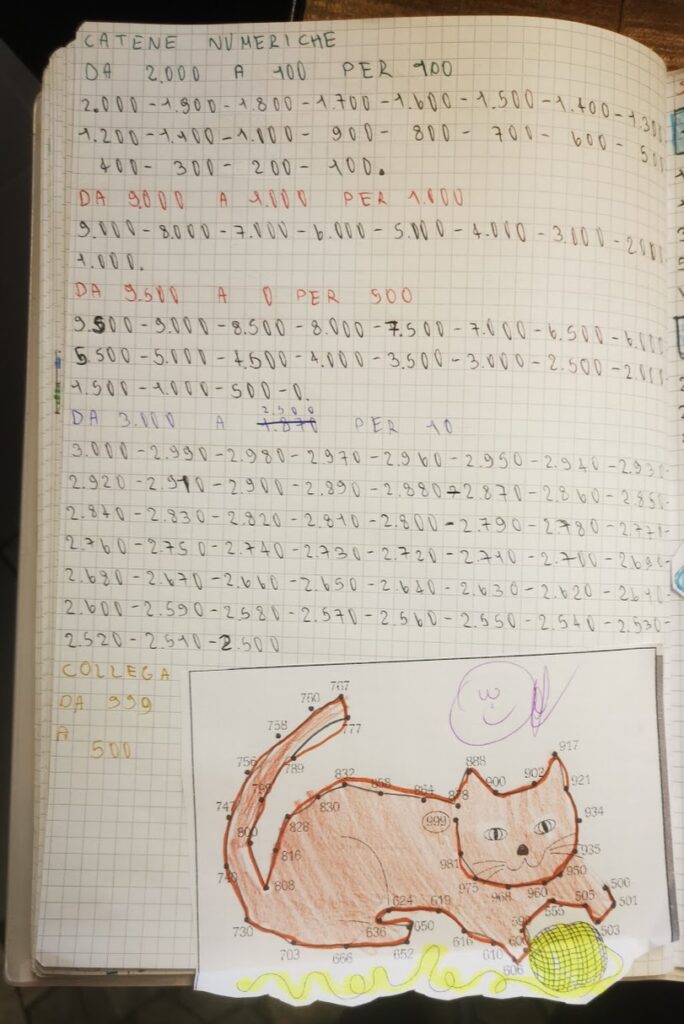 CATENE NUMERICHE
DA 2.000 A 100 PER 100
2.000-1.900-1.800-1.700-1.600-1.500-1.400-1.300
1.200-1.100-1.000-900-800-700-600-500
400-300-200-100.
DA 9.000 A 1.000 PER 1.000
9.000-8.000-7.000-6.000-5.000-4.000-3.000-2000
1.000.
DA 9.500 A 0 PER 500
9.500-9.000-8.500-8.000-7.500-7.000-6.500-6.000
5.500-5.000-4.500-4.000-3.500-3.000-2.500-2.000-
1.500-1.000-500-0.
2.500
DA 3.000 A 1.870 PER 10
3.000-2.990-2.980-2.970-2.960-2.950-2.940-2.930-
2.920-2.910-2.900-2.890-2.880-2.870-2.860-2.850-
2.840-2.830-2.820-2.810-2.800-2.790-2.780-2.770-
2.760-2.750-2.740-2.730-2.720-2.710-2.700-2.690-
2.680-2.670-2.660-2.650-2.640-2.630-2.620-2.610-
2.600-2.590-2.580-2.570-2.560-2.550-2.540-2.530-
2.520-2.510-2.500
COLLEGA
DA 999
A
500
767
760
777
758
789
756
832
858
864
878
888
900
902
917
921
799
830
747
828
999
934
800
816
981
935
740
808
975
968
960
950
624
619
505
500
501
730
636
650
555
503
616
703
666
652
610
606